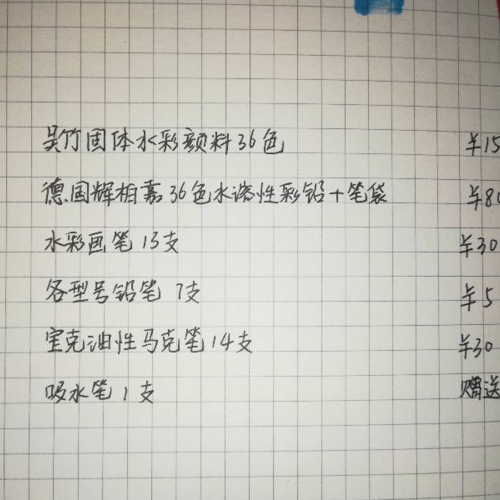 吴竹固体水彩颜料36色 ¥15
德国辉柏嘉36色水溶性彩铅+笔袋 ¥80
水彩画笔15支 ¥30
各型号铅笔 7支 ¥5
宝克油性马克笔14支 ¥30
吸水笔1支 赠送